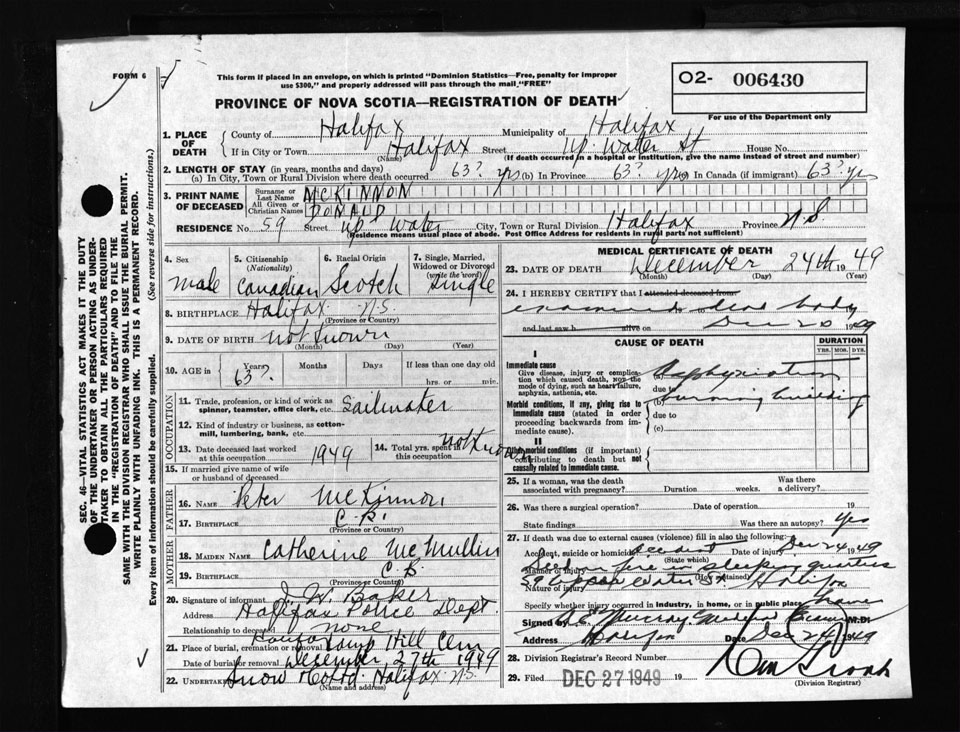 FORM 6
This form if placed in an envelope, on which is printed "Dominion Statistics—Free, penalty for improper
use $300," and properly addressed will pass through the mail "FREE"
O2- 006430
For use of the Department only
PROVINCE OF NOVA SCOTIA—REGISTRATION OF DEATH
1. PLACE OF DEATH
County of Halifax Municipality of Halifax
If in City or Town Halifax Street Up. Water St House No.
(Name) (If death occurred in a hospital or institution, give the name instead of street and number)
2. LENGTH OF STAY (in years, months and days)
(a) In City, Town or Rural Division where death occurred 63? yrs (b) In Province 63? yrs (c) In Canada (if immigrant) 63? yrs
3. PRINT NAME OF DECEASED
Surname or Last Name MCKINNON
All Given or Christian Names DONALD
RESIDENCE No. 59 Street up Water City, Town or Rural Division Halifax Province N.S
(Residence means usual place of abode. Post Office Address for residents in rural parts not sufficient)
4. Sex
male
5. Citizenship (Nationality)
Canadian
6. Racial Origin
Scotch
7. Single, Married, Widowed or Divorced (write the word)
Single
8. BIRTHPLACE Halifax N.S.
(Province or Country)
9. DATE OF BIRTH not known
(Month) (Day) (Year)
10. AGE in Years 63? Months Days If less than one day
hrs. or min.
OCCUPATION
11. Trade, profession, or kind of work as spinner, teamster, office clerk, etc. Sailmaker
12. Kind of industry or business, as cotton-mill, lumbering, bank, etc.
13. Date deceased last worked at this occupation 1949
14. Total yrs. spent in this occupation not known
15. If married give name of wife or husband of deceased
FATHER
16. NAME Peter McKinnon
17. BIRTHPLACE C.B.
(Province or Country)
MOTHER
18. MAIDEN NAME Catherine McMullin
19. BIRTHPLACE C.B.
(Province or Country)
20. Signature of informant J. W. Baker
Address Halifax Police Dept.
Relationship to deceased none
21. Place of burial, cremation or removal Halifax Camp Hill Cem
Date of burial or removal December 27th 1949
22. Undertaker Snow Halifax N.S.
(Name and address)
MEDICAL CERTIFICATE OF DEATH
23. DATE OF DEATH December 24th 1949
(Month) (Day) (Year)
24. I HEREBY CERTIFY that I attended deceased from
examined dead body
and last saw h alive on Dec 1949
CAUSE OF DEATH
DURATION
YRS. MOS. DYS.
I
Immediate cause
Give disease, injury or complication which caused death, not the mode of dying, such as heart failure, asphyxia, asthenia, etc.
Asphyxiation
due to burning building
Morbid conditions, if any, giving rise to immediate cause (stated in order proceeding backwards from immediate cause).
due to
(c)
II
Other morbid conditions (if important) contributing to death but not causally related to immediate cause.
25. If a woman, was the death associated with pregnancy? Duration weeks. Was there a delivery?
26. Was there a surgical operation? Date of operation 19
State findings Was there an autopsy? Yes
27. If death was due to external causes (violence) fill in also the following:
Accident, suicide or homicide Accident Date of injury Dec 24 1949
(State which)
Manner of injury fire in sleeping quarters
(How sustained)
Nature of injury 59 Upper Water St Halifax
Specify whether injury occurred in industry, in home, or in public place
Signed by Murray Medical M.D.
Address Halifax Date Dec 24 1949
28. Division Registrar's Record Number
29. Filed DEC 27 1949 19
(Division Registrar)
SEC. 46—VITAL STATISTICS ACT MAKES IT THE DUTY
OF THE UNDERTAKER OR PERSON ACTING AS UNDER-
TAKER TO OBTAIN ALL THE PARTICULARS REQUIRED
IN THE "REGISTRATION OF DEATH" AND TO FILE THE
SAME WITH THE DIVISION REGISTRAR WHO SHALL ISSUE THE BURIAL PERMIT.
WRITE PLAINLY WITH UNFADING INK. THIS IS A PERMANENT RECORD.
Every item of information should be carefully supplied. (See reverse side for instructions.)